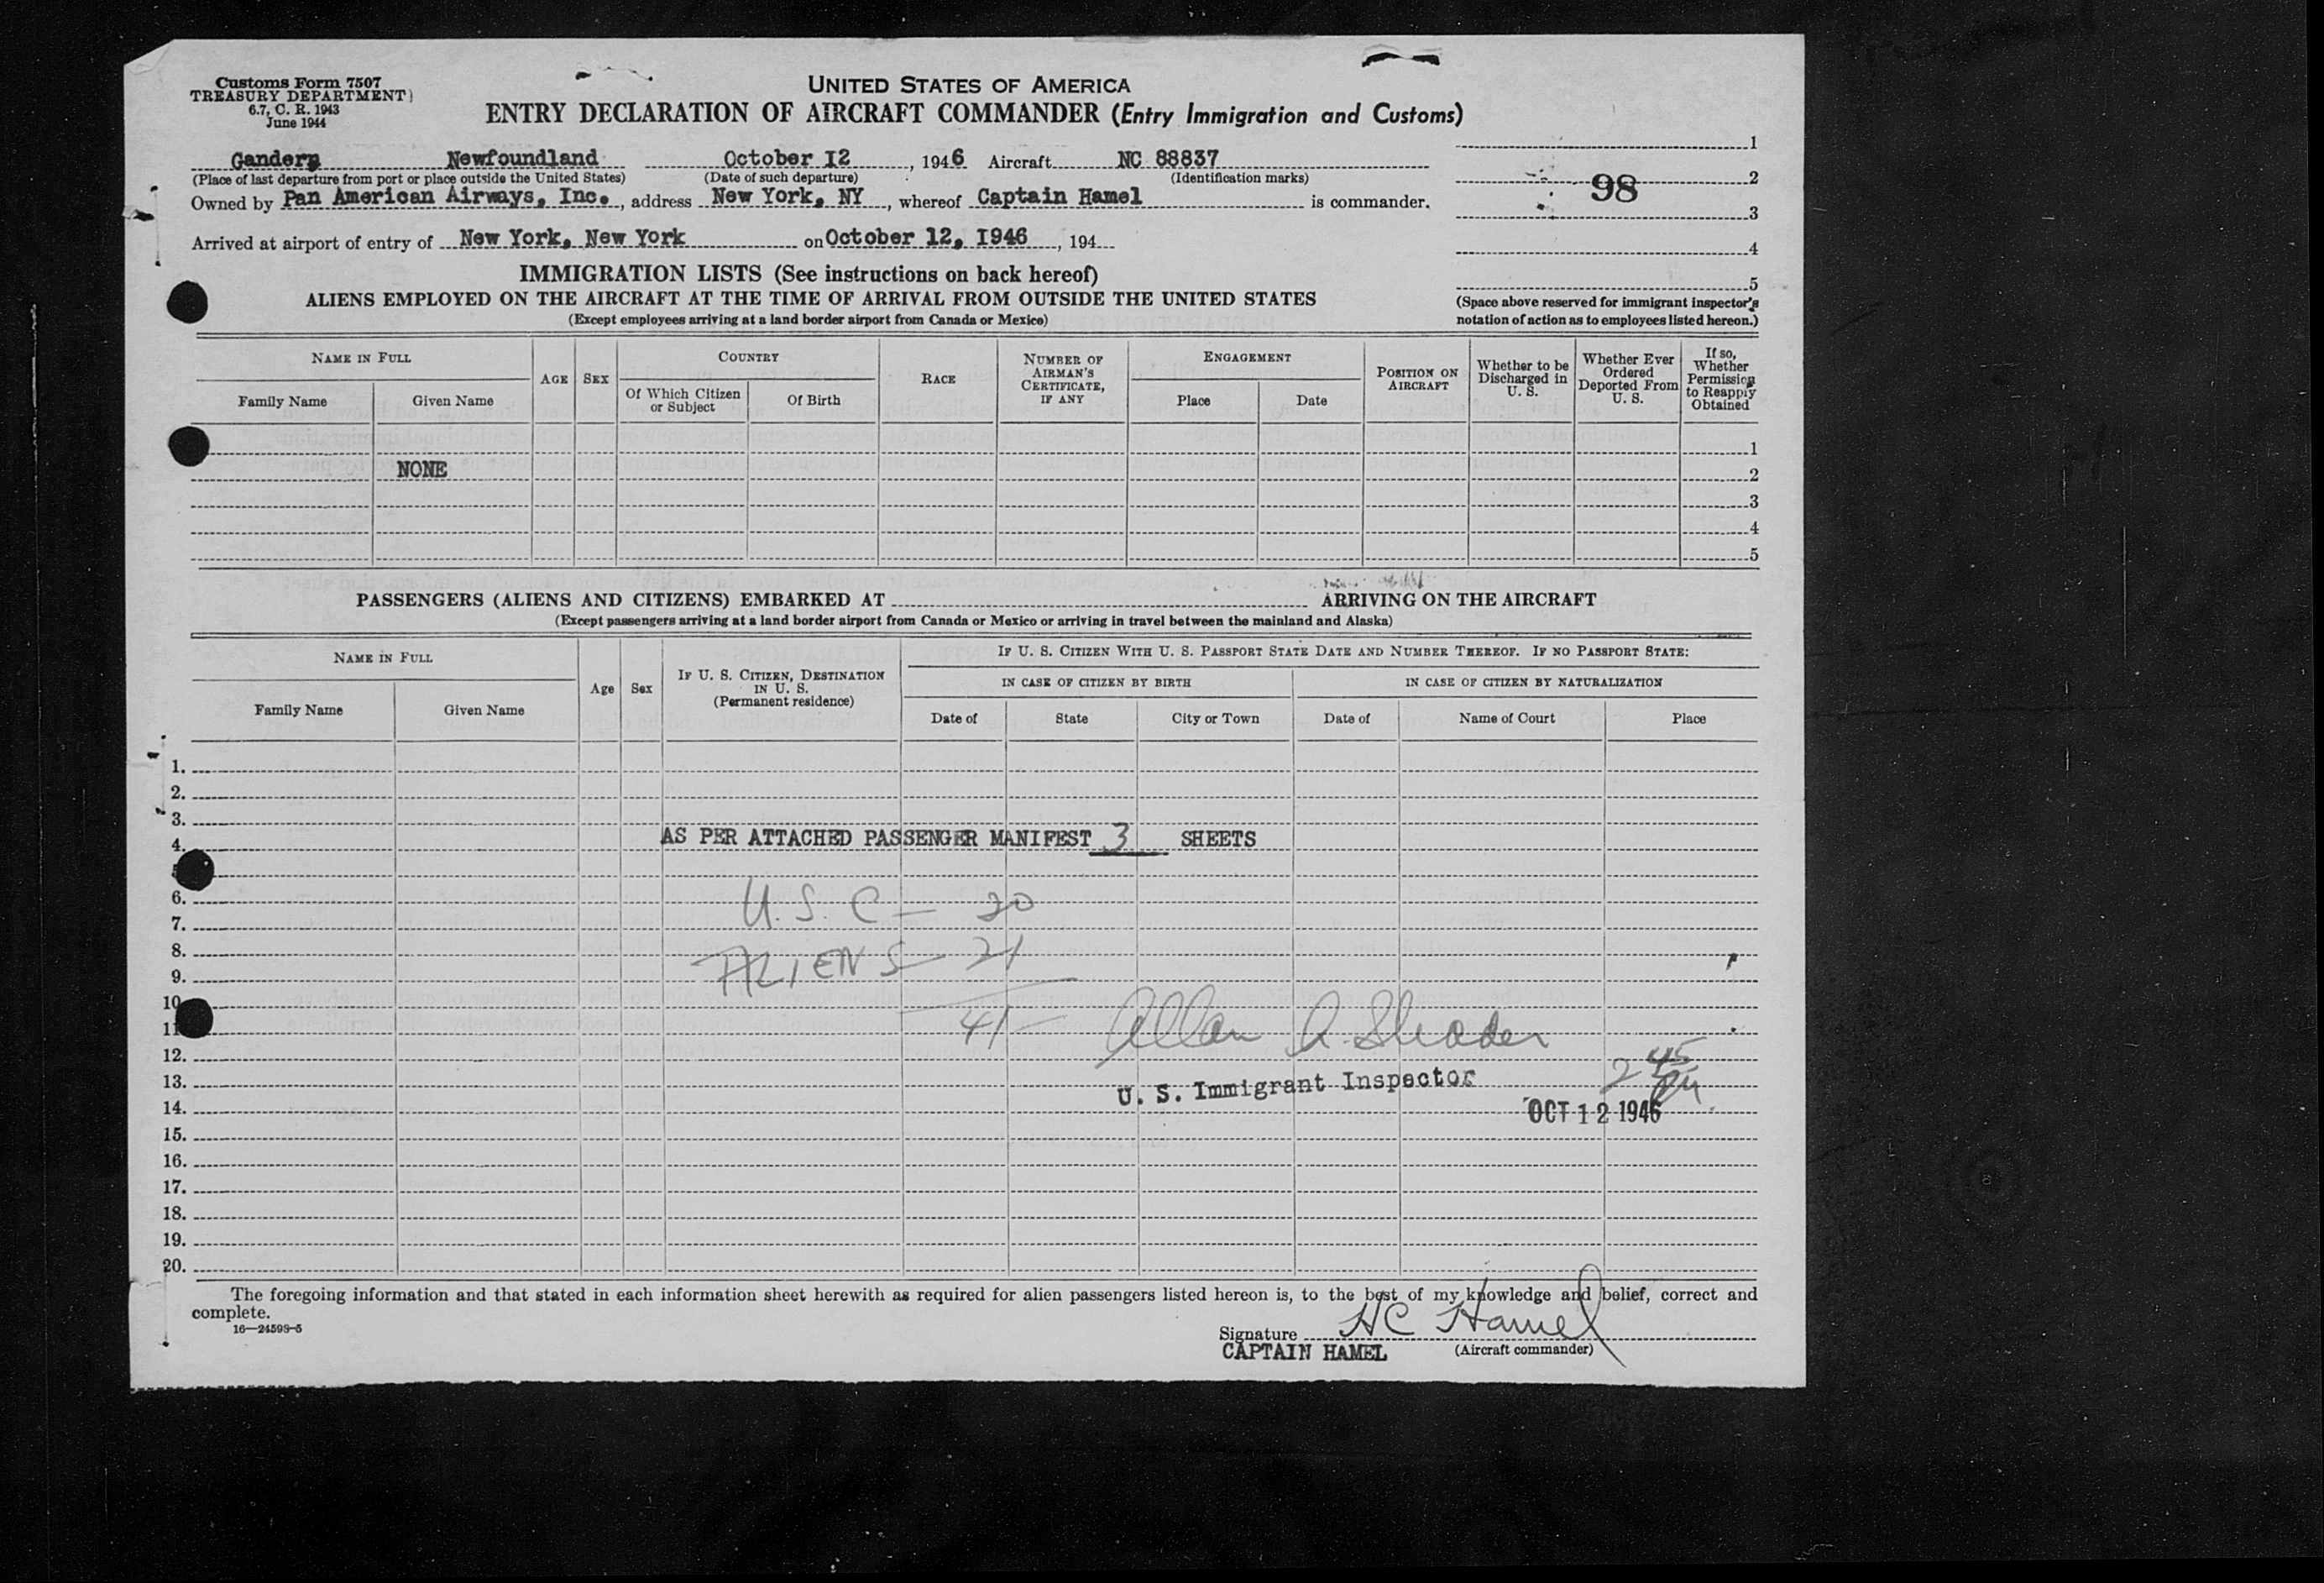 Customs Form 7507
TREASURY DEPARTMENT)
6.7, C. R. 1943
June 1944
UNITED STATES OF AMERICA
ENTRY DECLARATION OF AIRCRAFT COMMANDER (Entry Immigration and Customs)
Gander, Newfoundland October I2, 1946 Aircraft NC 88837
(Place of last departure from port or place outside the United States) (Date of such departure) (Identification marks)
Owned by Pan American Airways, Inc., address New York, NY, whereof Captain Hamel is commander.
Arrived at airport of entry of New York, New York on October 12, I946, 194
1
2
98
3
4
5
(Space above reserved for immigrant inspector's
notation of action as to employees listed hereon.)
IMMIGRATION LISTS (See instructions on back hereof)
ALIENS EMPLOYED ON THE AIRCRAFT AT THE TIME OF ARRIVAL FROM OUTSIDE THE UNITED STATES
(Except employees arriving at a land border airport from Canada or Mexico)
NAME IN FULL
Family Name
Given Name
AGE
SEX
COUNTRY
Of Which Citizen
or Subject
Of Birth
RACE
NUMBER OF
AIRMAN'S
CERTIFICATE,
IF ANY
ENGAGEMENT
Place
Date
POSITION ON
AIRCRAFT
Whether to be
Discharged in
U. S.
Whether Ever
Ordered
Deported From
U. S.
If so,
Whether
Permission
to Reapply
Obtained
1
NONE 2
3
4
5
PASSENGERS (ALIENS AND CITIZENS) EMBARKED AT ARRIVING ON THE AIRCRAFT
(Except passengers arriving at a land border airport from Canada or Mexico or arriving in travel between the mainland and Alaska)
NAME IN FULL
Family Name
Given Name
Age
Sex
IF U. S. CITIZEN, DESTINATION
IN U. S.
(Permanent residence)
IF U. S. CITIZEN WITH U. S. PASSPORT STATE DATE AND NUMBER THEREOF. IF NO PASSPORT STATE:
IN CASE OF CITIZEN BY BIRTH
IN CASE OF CITIZEN BY NATURALIZATION
Date of
State
City or Town
Date of
Name of Court
Place
1.
2.
3.
4. AS PER ATTACHED PASSENGER MANIFEST 3 SHEETS
6.
7. U. S. C — 20
8.
9. ALIENS — 21
10
11 41 — Allan A. Shader
12.
13. U. S. Immigrant Inspector 2 45 PM
14. OCT 12 1946
15.
16.
17.
18.
19.
20.
The foregoing information and that stated in each information sheet herewith as required for alien passengers listed hereon is, to the best of my knowledge and belief, correct and
complete.
16—24598-5
Signature HC Hamel
CAPTAIN HAMEL (Aircraft commander)